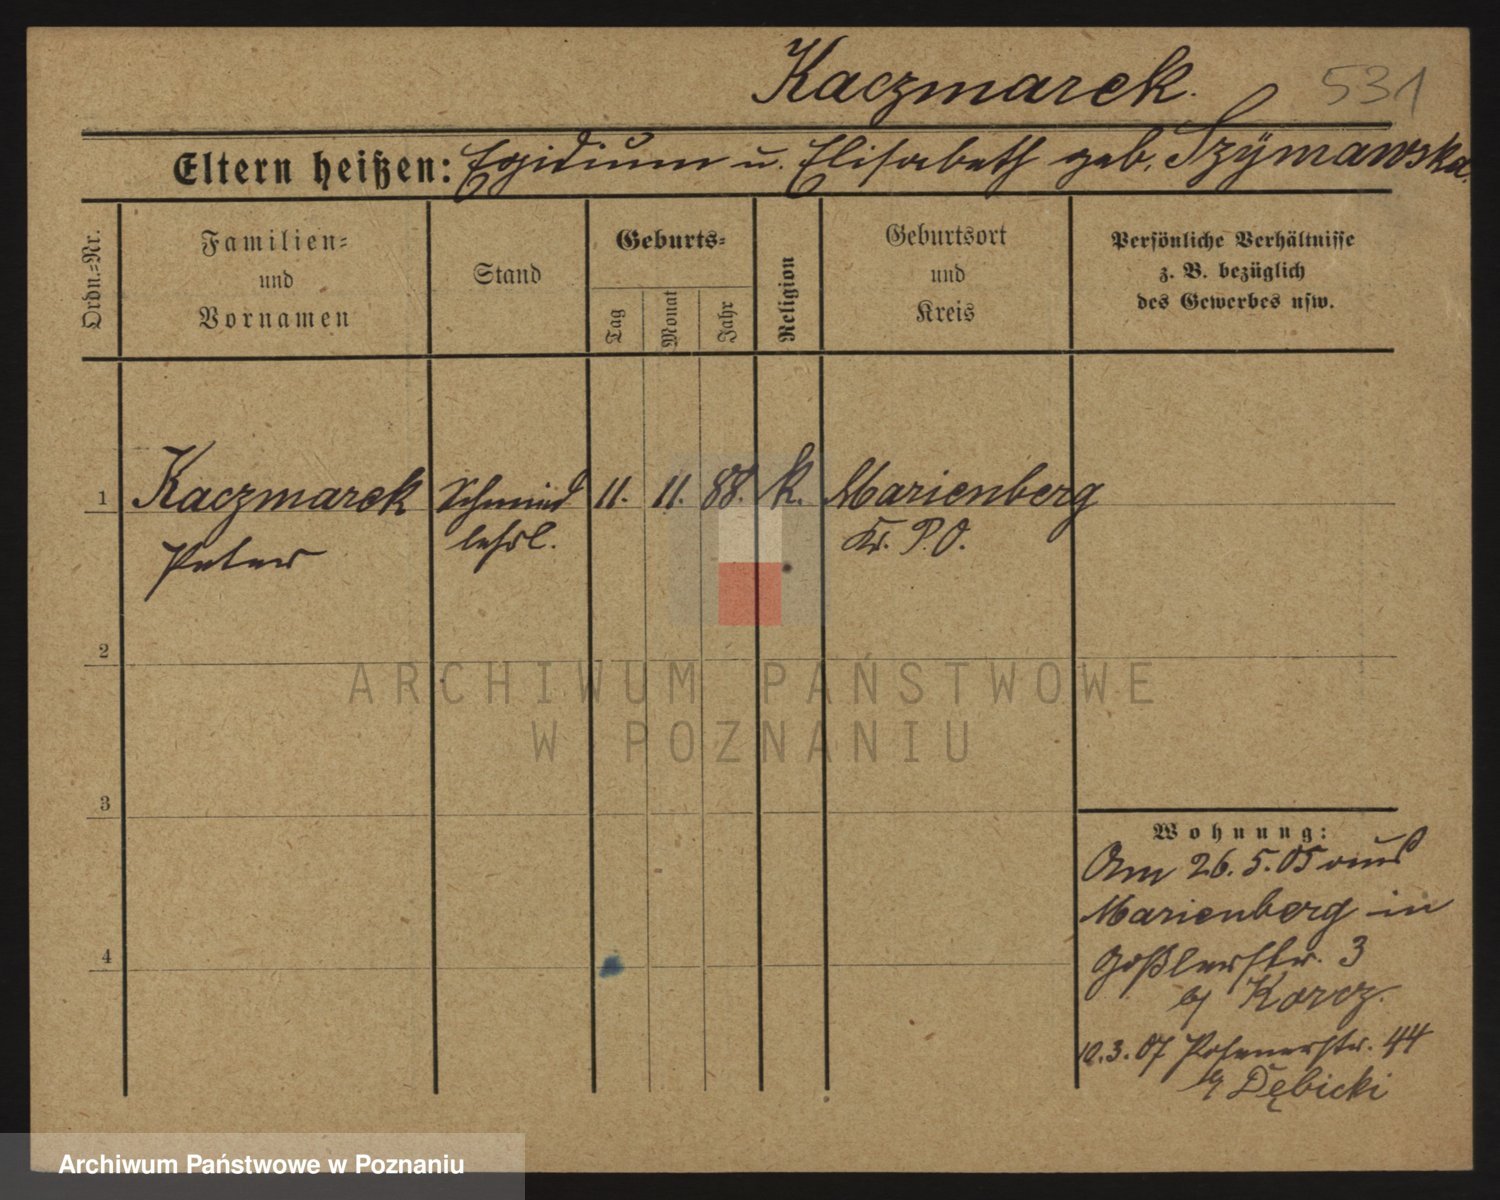 Kaczmarek. 531
Eltern heißen: Egidium u. Elisabeth geb. Szÿmawska.
Ordn.=Nr.
Familien=
und
Vornamen
Stand
Geburts=
Tag
Monat
Jahr
Religion
Geburtsort
und
Kreis
Persönliche Verhältnisse
z. B. bezüglich
des Gewerbes usw.
1 Kaczmarek Schmied 11. 11. 88. k. Marienberg
Peter lehrl. Kr. P.O.
2
ARCHIWUM PAŃSTWOWE
W POZNANIU
3
Wohnung:
Am 26.5.05 aus
Marienberg in
Goßlerstr. 3
b/ Korcz.
4
10.3.07 Posenerstr. 44
b/ Dębicki
Archiwum Państwowe w Poznaniu